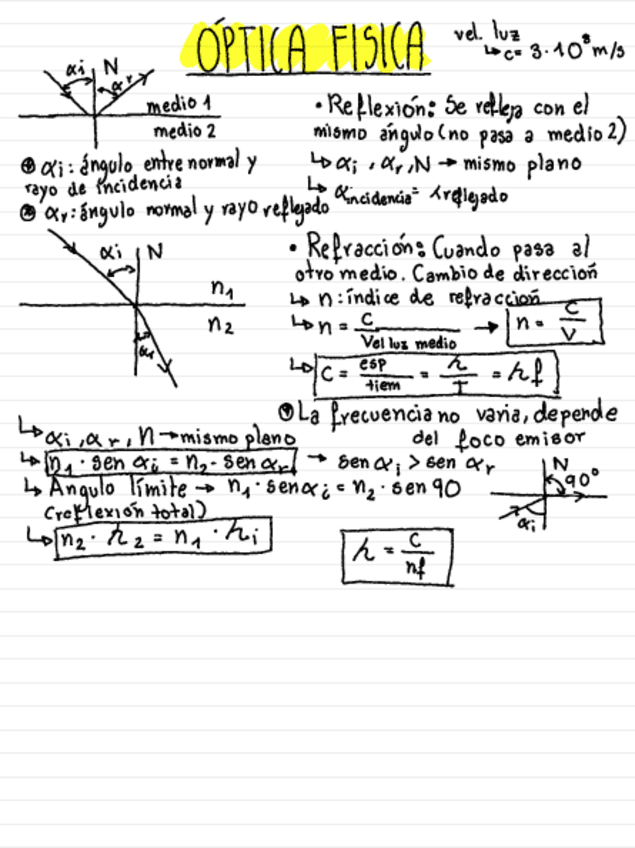 ÓPTICA FISICA
vel. luz
↳ c= 3·10⁸ m/s
αi N αr
medio 1
medio 2
• Reflexión: Se refleja con el
mismo ángulo (no pasa a medio 2)
↳ αi, αr, N → mismo plano
↳ αincidencia = λreflejado
αi: ángulo entre normal y
rayo de incidencia
αr: ángulo normal y rayo reflejado
αi N
n1
n2
αr
• Refracción: Cuando pasa al
otro medio. Cambio de dirección
↳ n: índice de refracción
↳ n = c / Vel luz medio → n = c / v
↳ c = esp / tiem = λ / T = λf
La frecuencia no varia, depende
del foco emisor
↳ αi, αr, N → mismo plano
↳ n1 · sen αi = n2 · sen αr → sen αi > sen αr
↳ Angulo límite → n1 · sen αi = n2 · sen 90
(reflexión total)
N
90°
αi
↳ n2 · λ2 = n1 · λi
λ = c / nf